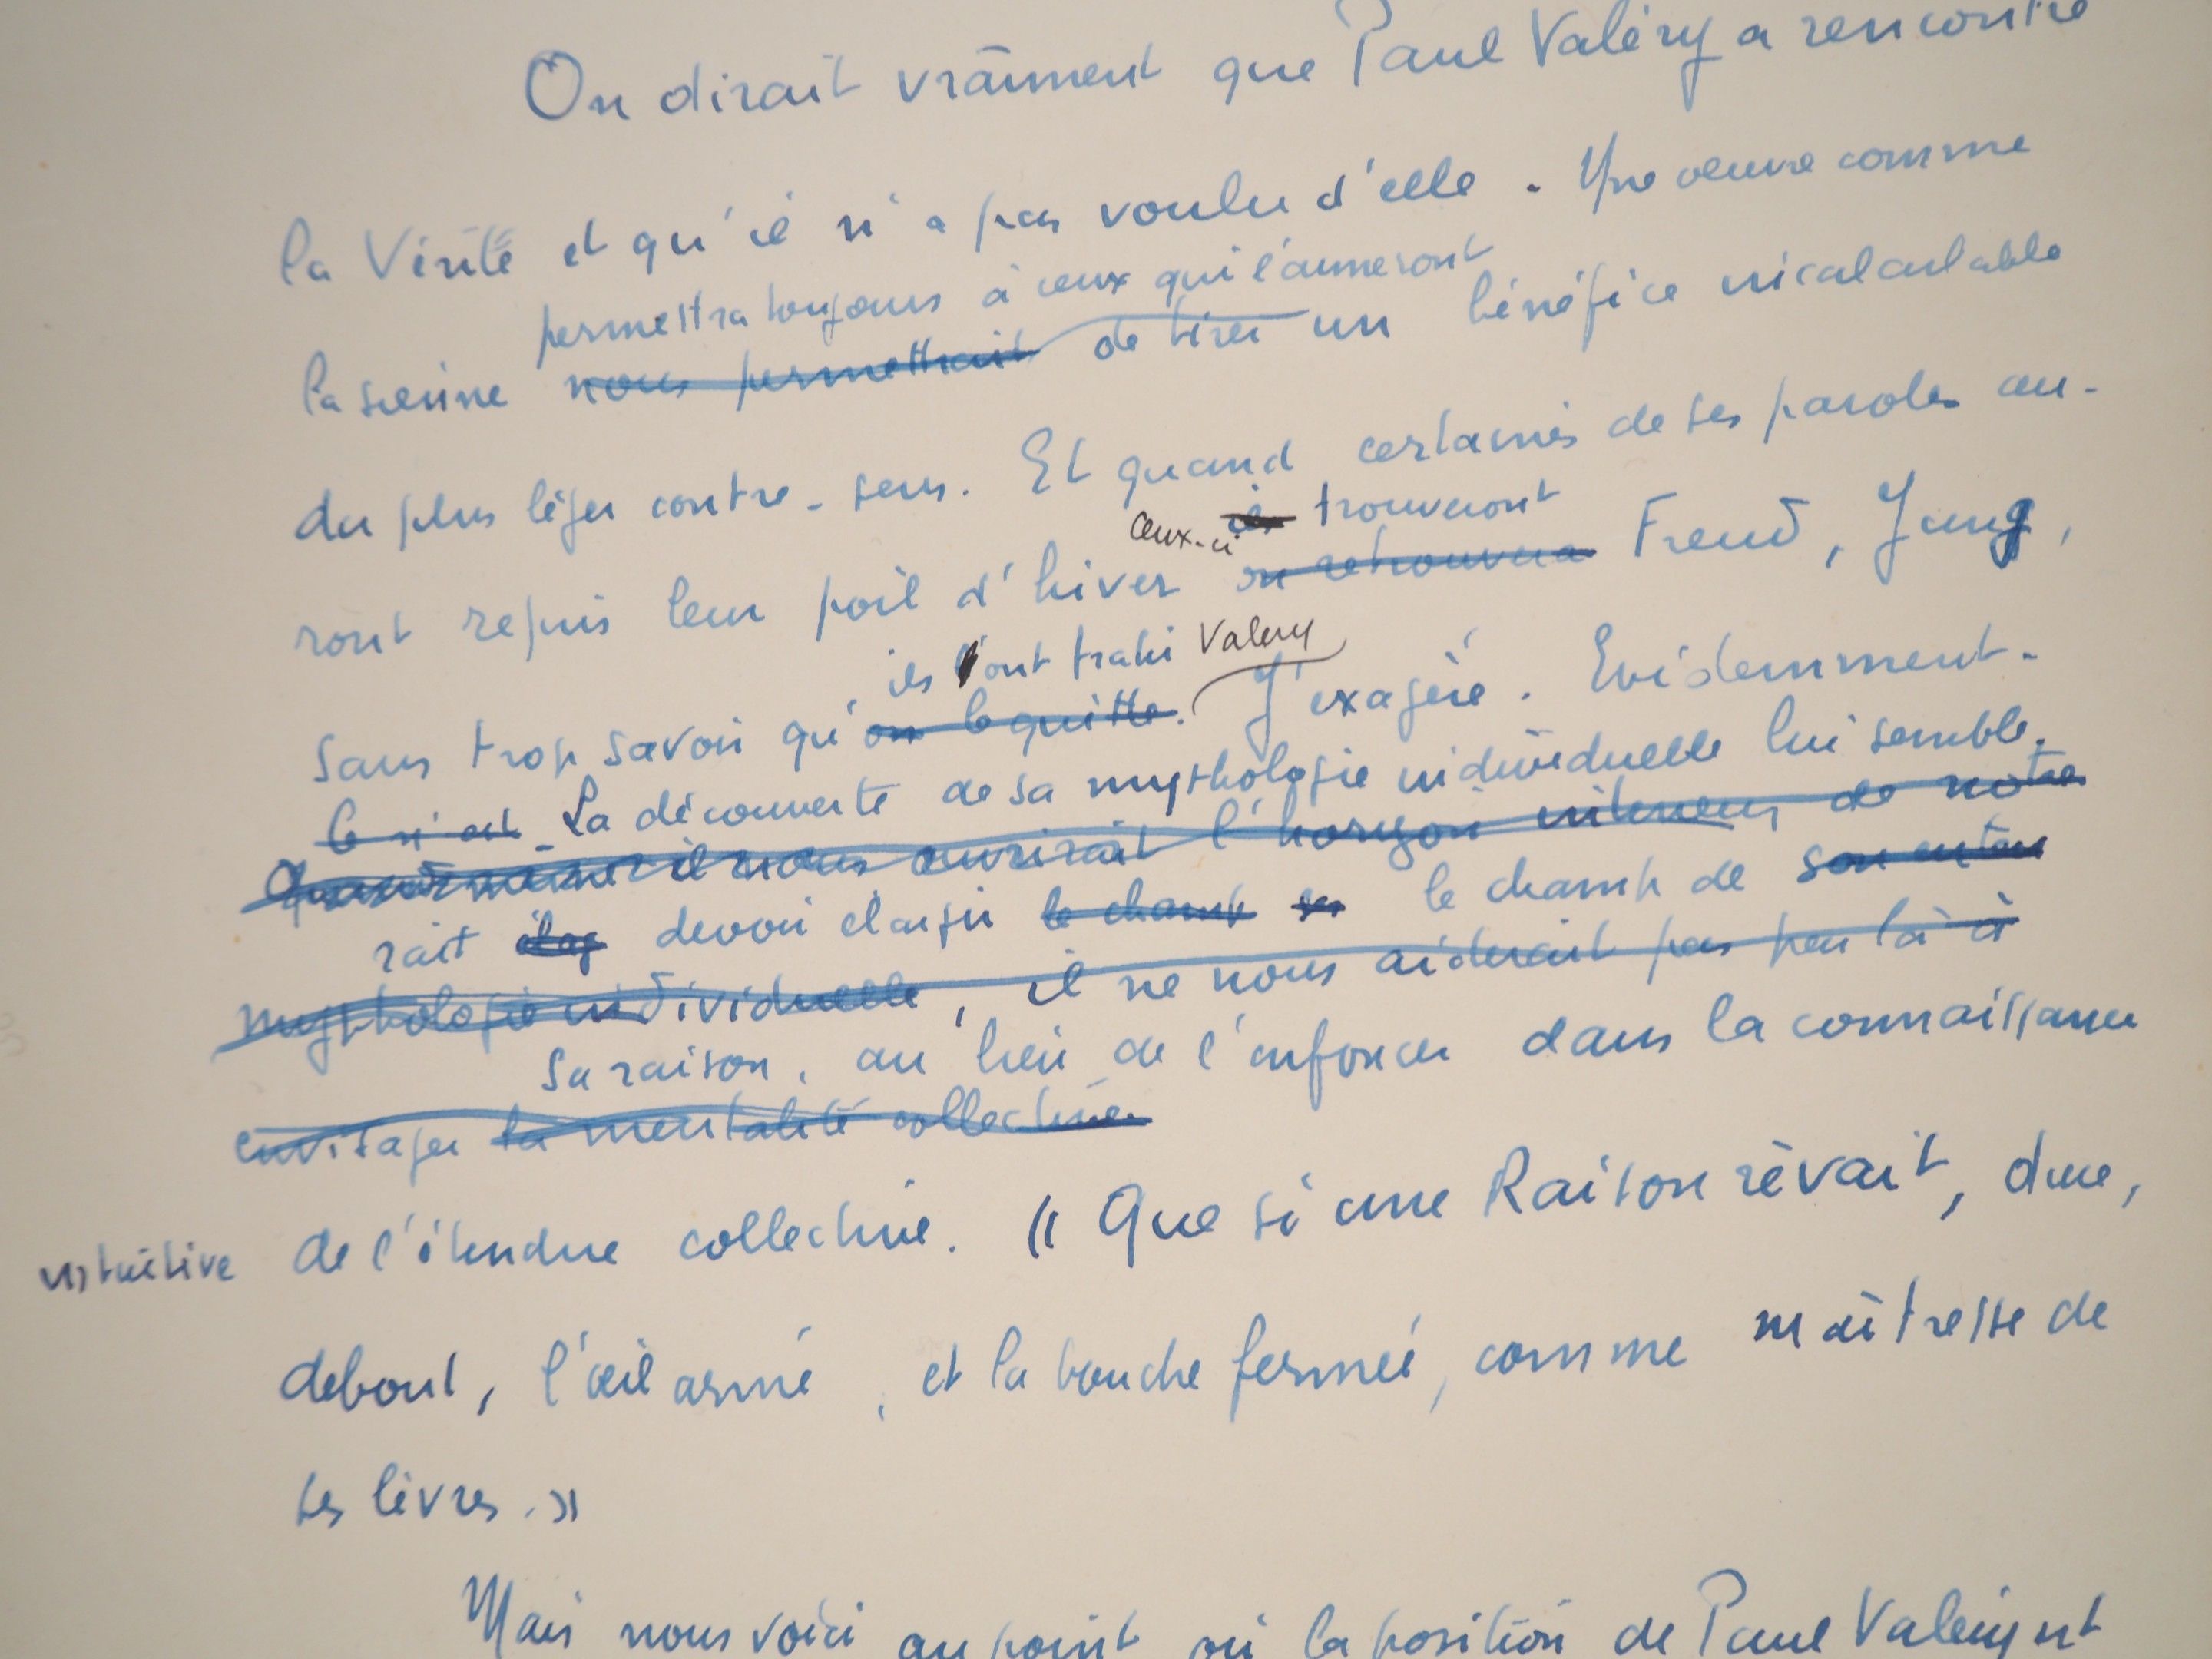 On dirait vraiment que Paul Valéry a rencontré
la Vérité et qu'il n'a pas voulu d'elle. Une œuvre comme
permettra toujours à ceux qui l'aimeront
la sienne nous permettrait de tirer un bénéfice incalculable
du plus léger contre-sens. Et quand certaines de ses paroles au-
ceux-ci ils trouveront
ront repris leur poil d'hiver on retrouvera Freud, Jung,
ils l'ont trahi Valéry
sans trop savoir qu'on le quitte. J'exagère. Evidemment.
Ce n'est La découverte de sa mythologie individuelle lui semble-
Quand même il nous ouvrirait l'horizon intérieur de notre
rait devoir élargir le champ le champ de son
mythologie individuelle, il ne nous aiderait pas peu là à
sa raison, au lieu de l'enfoncer dans la connaissance
envisager la mentalité collective
intuitive de l'étendue collective. « Que si une Raison rêvait, dure,
debout, l'œil armé, et la bouche fermée, comme maîtresse de
ses lèvres. »
Mais nous voici au point où la position de Paul Valéry est